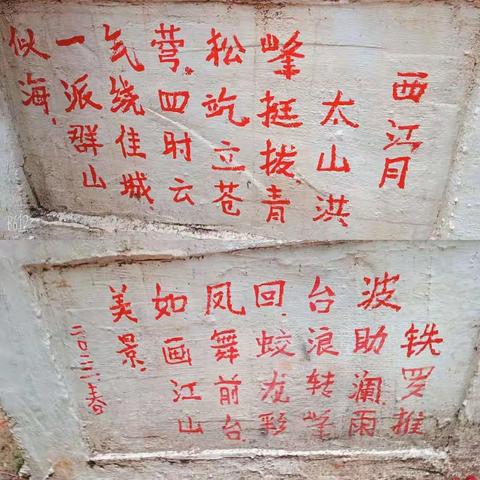 西江月
太山洪
峰挺拔,青
松屹立苍
穹.四时云
气绕佳城,
一派群山
似海,
B612
铁罗推
波助澜,雨
台浪转峰
回.蛟龙彩
凤舞前台,
如画江山
美景.
二〇二二.春